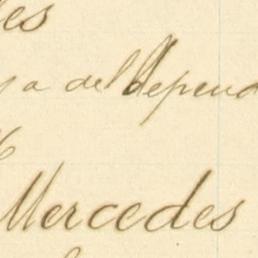 es
a del depend
Mercedes